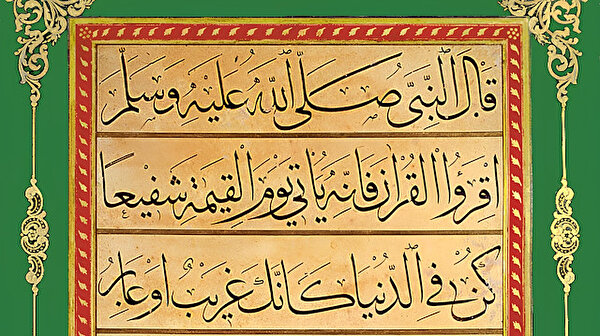 قَالَ النَّبِيُّ صَلَّى اللّٰهُ عَلَيْهِ وَسَلَّمَ
اِقْرَؤُا الْقُرْاٰنَ فَاِنَّهُ يَأْتِي يَوْمَ الْقِيٰمَةِ شَفِيعًا
كُنْ فِي الدُّنْيَا كَاَنَّكَ غَرِيبٌ اَوْ عَابِرُ